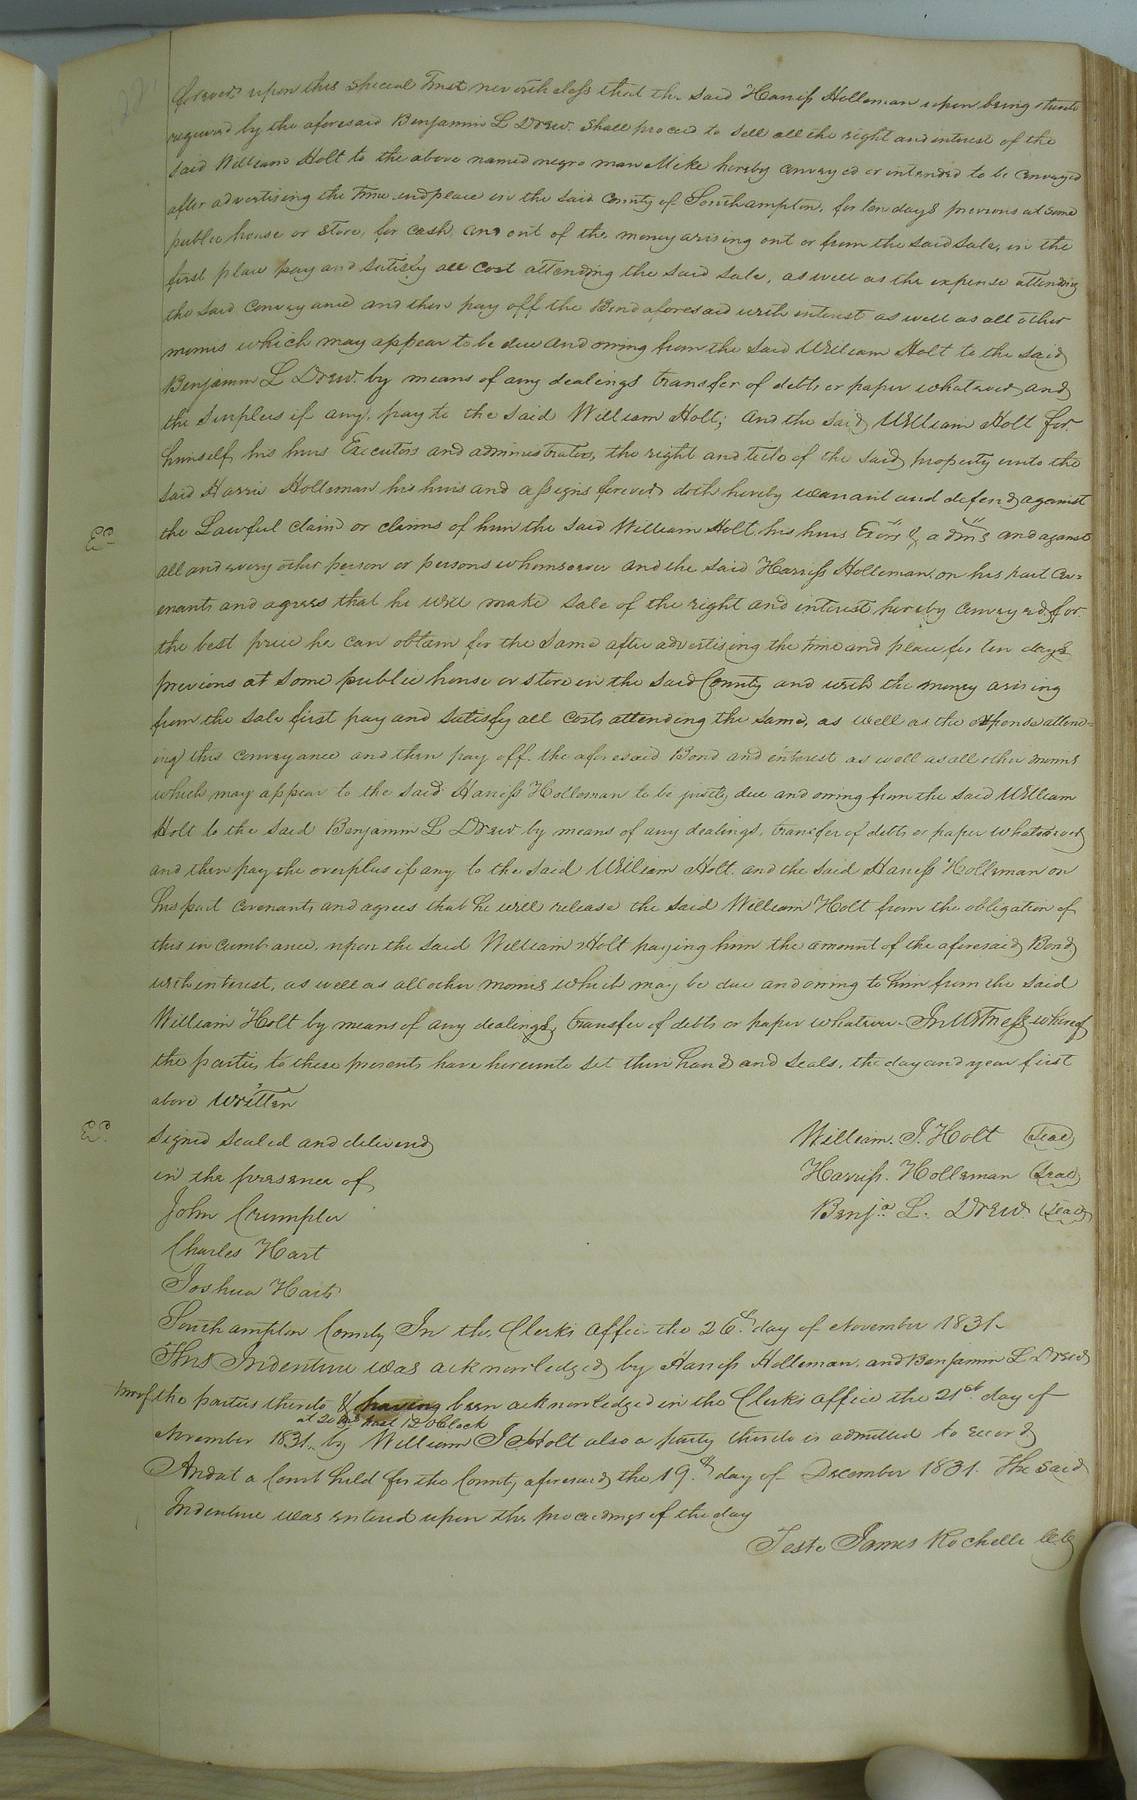 forever upon this special Trust nevertheless that the said Harriss Holleman upon being thereto
required by the aforesaid Benjamin L Drew. Shall proceed to sell all the right and interest of the
said William Holt to the above named negro man Mike hereby conveyed or intended to be conveyed
after advertising the time and place in the said County of Southampton, for ten days previous at some
public house or store, for cash, and out of the money arising out or from the said sale, in the
first place pay and satisfy all cost attending the said sale, as well as the expense attending
the said conveyance and then pay off the Bond aforesaid with interest as well as all other
monies which may appear to be due and owing from the said William Holt to the said
Benjamin L Drew. by means of any dealings transfer of debts or paper whatever, and
the surplus if any, pay to the said William Holt; and the said William Holt for
himself, his heirs Executors and administrators, the right and title of the said property unto the
said Harris Holleman his heirs and assigns forever doth hereby warrant and defend against
the Lawful claim or claims of him the said William Holt, his heirs Exors & adms and against
all and every other person or persons whomsoever and the said Harriss Holleman, on his part cov=
enants and agrees that he will make sale of the right and interest hereby conveyed for
the best price he can obtain for the same after advertising the time and place for ten days
previous at some public house or store in the said County and with the money arising
from the sale first pay and satisfy all costs attending the same, as well as the expense attend=
ing this conveyance and then pay off. the aforesaid Bond and interest as well as all other monies
which may appear to the said Harriss Holleman to be justly due and owing from the said William
Holt to the said Benjamin L Drew by means of any dealings, transfer of debts or paper whatsoever
and then pay the overplus if any to the said William Holt. and the said Harriss Holleman on
his part covenants and agrees that he will release the said William Holt from the obligation of
this incumbrance, upon the said William Holt paying him the amount of the aforesaid Bond
with interest, as well as all other monies which may be due and owing to him from the said
William Holt by means of any dealings, transfer of debts or paper whatever. In Witness whereof
the parties to these presents have hereunto set their hands and seals, the day and year first
above written
Signed sealed and delivered
in the presence of
John Crumpler
Charles Hart
Joshua Harts
William. J. Holt (Seal)
Harriss. Holleman (Seal)
Benja. L. Drew (Seal)
Southampton County In the Clerks office the 26th day of November 1831.
This Indenture was acknowledged by Harriss Holleman. and Benjamin L Drew
two of the parties thereto & having been acknowledged in the Clerks office the 21st day of
at 20 ms past 12 OClock
November 1831. by William J Holt also a party thereto is admitted to record
And at a Court held for the County aforesaid the 19th day of December 1831. The said
Indenture was entered upon the proceedings of the day
Teste James Rochelle